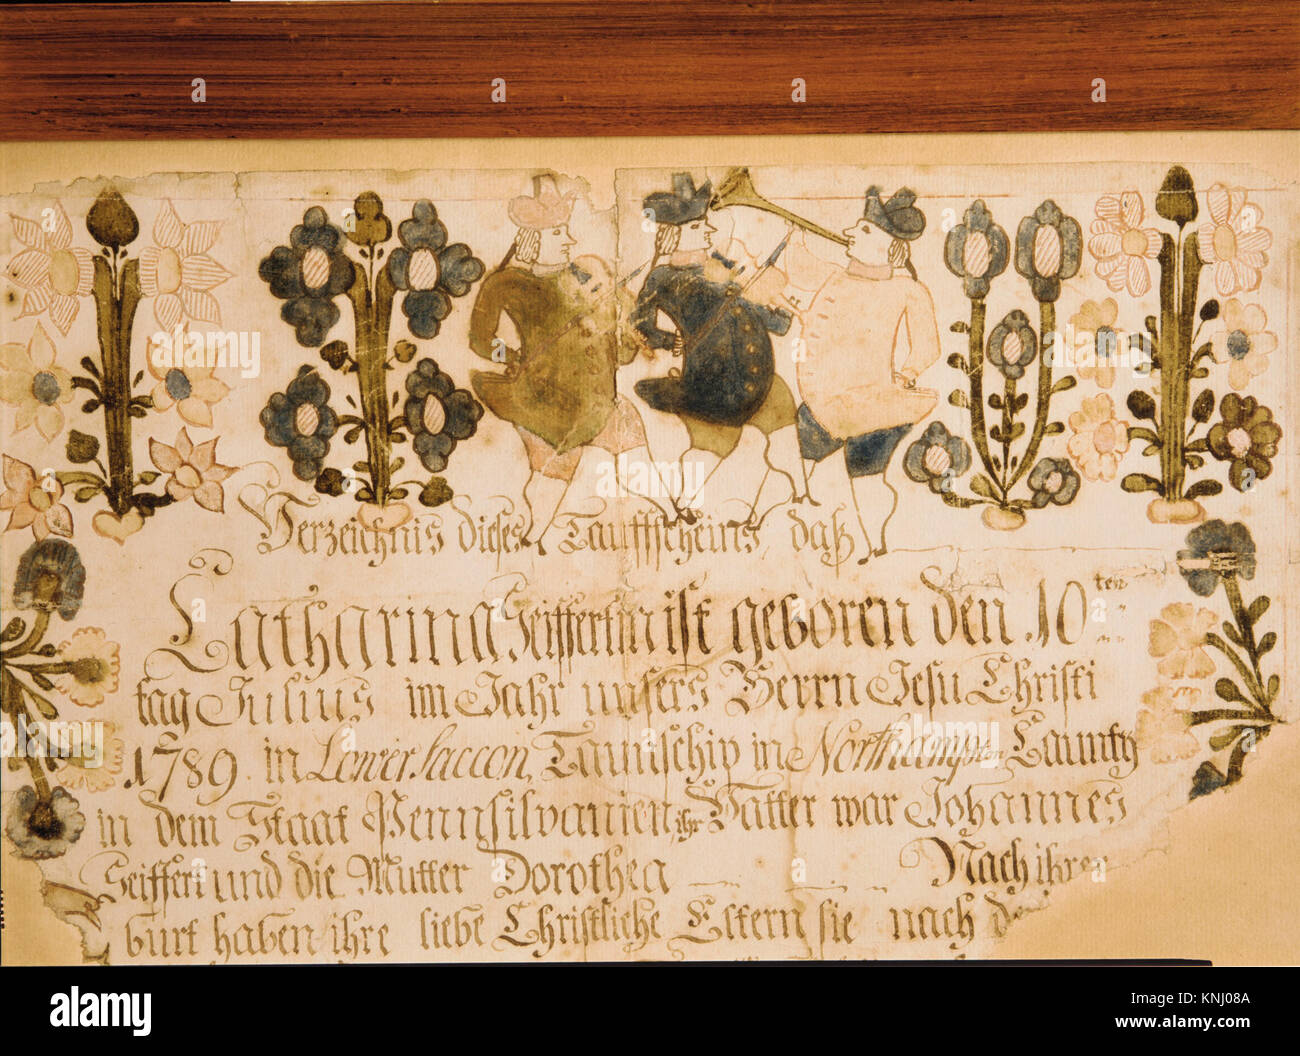 Verzeichnis dieses Taufscheins daß
Catharina Seiffertin ist geboren den 10ten
tag Julius im Jahr unsers Herrn Jesu Christi
1789. in Lower Saccon, Taunschip in Northampton Caunty
in dem Staat Pennsilvanien, ihr Vatter war Johannes
Seiffert und die Mutter Dorothea Nach ihrer
burt haben ihre liebe Christliche Eltern sie nach
alamy
Image ID: KNJ08A
www.alamy.com